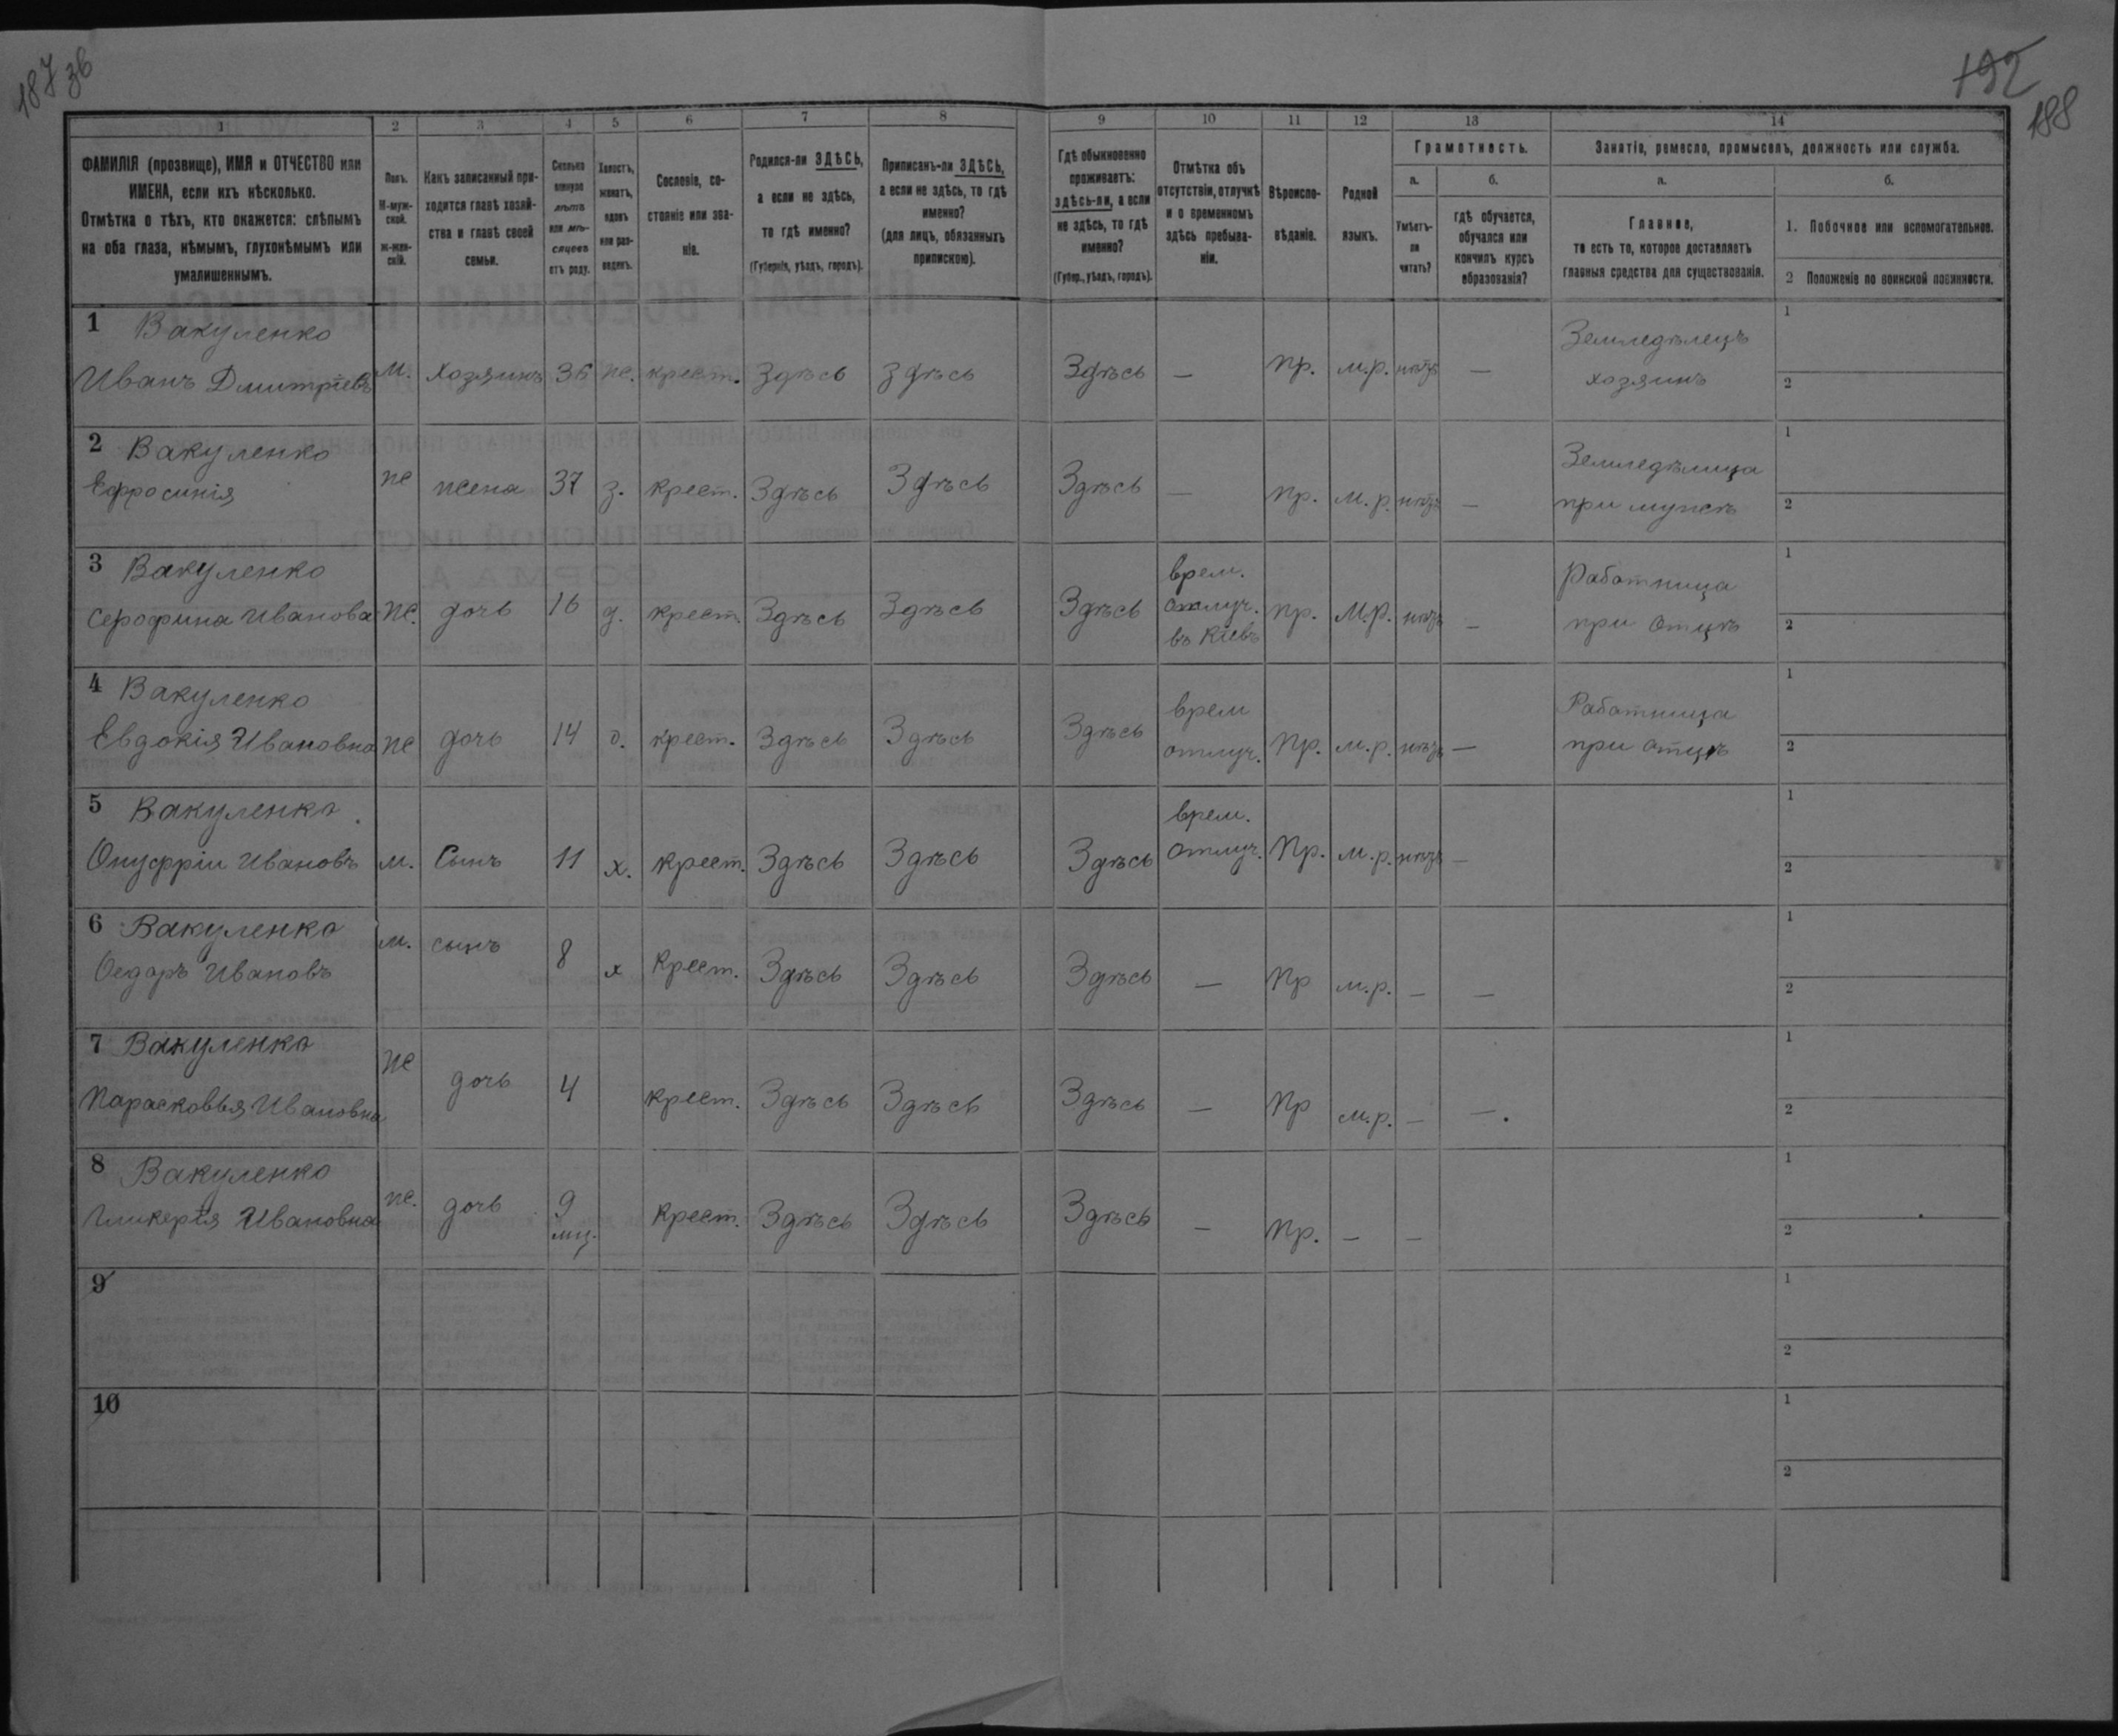 187 зв
192
188
1 2 3 4 5 6 7 8 9 10 11 12 13 14
ФАМИЛІЯ (прозвище), ИМЯ и ОТЧЕСТВО или ИМЕНА, если ихъ нѣсколько.
Отмѣтка о тѣхъ, кто окажется: слѣпымъ на оба глаза, нѣмымъ, глухонѣмымъ или умалишеннымъ.
Полъ. М-мужской. Ж-женскій.
Какъ записанный приходится главѣ хозяйства и главѣ своей семьи.
Сколько минуло лѣтъ или мѣсяцевъ отъ роду.
Холостъ, женатъ, вдовъ или разведенъ.
Сословіе, состояніе или званіе.
Родился-ли ЗДѢСЬ, а если не здѣсь, то гдѣ именно? (Губернія, уѣздъ, городъ).
Приписанъ-ли ЗДѢСЬ, а если не здѣсь, то гдѣ именно? (для лицъ, обязанныхъ припискою).
Гдѣ обыкновенно проживаетъ: здѣсь-ли, а если не здѣсь, то гдѣ именно? (Губер., уѣздъ, городъ).
Отмѣтка объ отсутствіи, отлучкѣ и о временномъ здѣсь пребываніи.
Вѣроисповѣданіе.
Родной языкъ.
Грамотность.
а. Умѣетъ-ли читать?
б. гдѣ обучается, обучался или кончилъ курсъ образованія?
Занятіе, ремесло, промыселъ, должность или служба.
а. Главное, то есть то, которое доставляетъ главныя средства для существованія.
б.
1. Побочное или вспомогательное.
2 Положеніе по воинской повинности.
1 Вакуленко
Иванъ Дмитріевъ м. хозяинъ 36 ж. крест. Здѣсь здѣсь Здѣсь — пр. м.р. нѣтъ — Земледѣлецъ хозяинъ 1 2
2 Вакуленко
Ефросинія ж жена 37 з. крест. Здѣсь Здѣсь Здѣсь — пр. м.р. нѣтъ — Земледѣлица при мужѣ 1 2
3 Вакуленко
Серофина Иванова ж. дочь 16 д. крест. Здѣсь Здѣсь Здѣсь врем. отлуч. въ Кіевъ пр. м.р. нѣтъ — Работница при отцѣ 1 2
4 Вакуленко
Евдокія Ивановна ж дочь 14 д. крест. Здѣсь Здѣсь Здѣсь врем отлуч. Пр. м.р. нѣтъ — Работница при отцѣ 1 2
5 Вакуленко
Онуфріи Ивановъ м. Сынъ 11 х. крест. Здѣсь Здѣсь Здѣсь врем. отлуч. Пр. м.р. нѣтъ — 1 2
6 Вакуленко
Ѳедаръ Ивановъ м. сынъ 8 х Крест. Здѣсь Здѣсь Здѣсь — Пр м.р. — — 1 2
7 Вакуленко
Парасковья Ивановна ж дочь 4 крест. Здѣсь Здѣсь Здѣсь — Пр м.р. — — 1 2
8 Вакуленко
Гликерія Ивановна ж. дочь 9 мц. крест. Здѣсь Здѣсь Здѣсь — Пр. — — 1 2
9 1 2
10 1 2